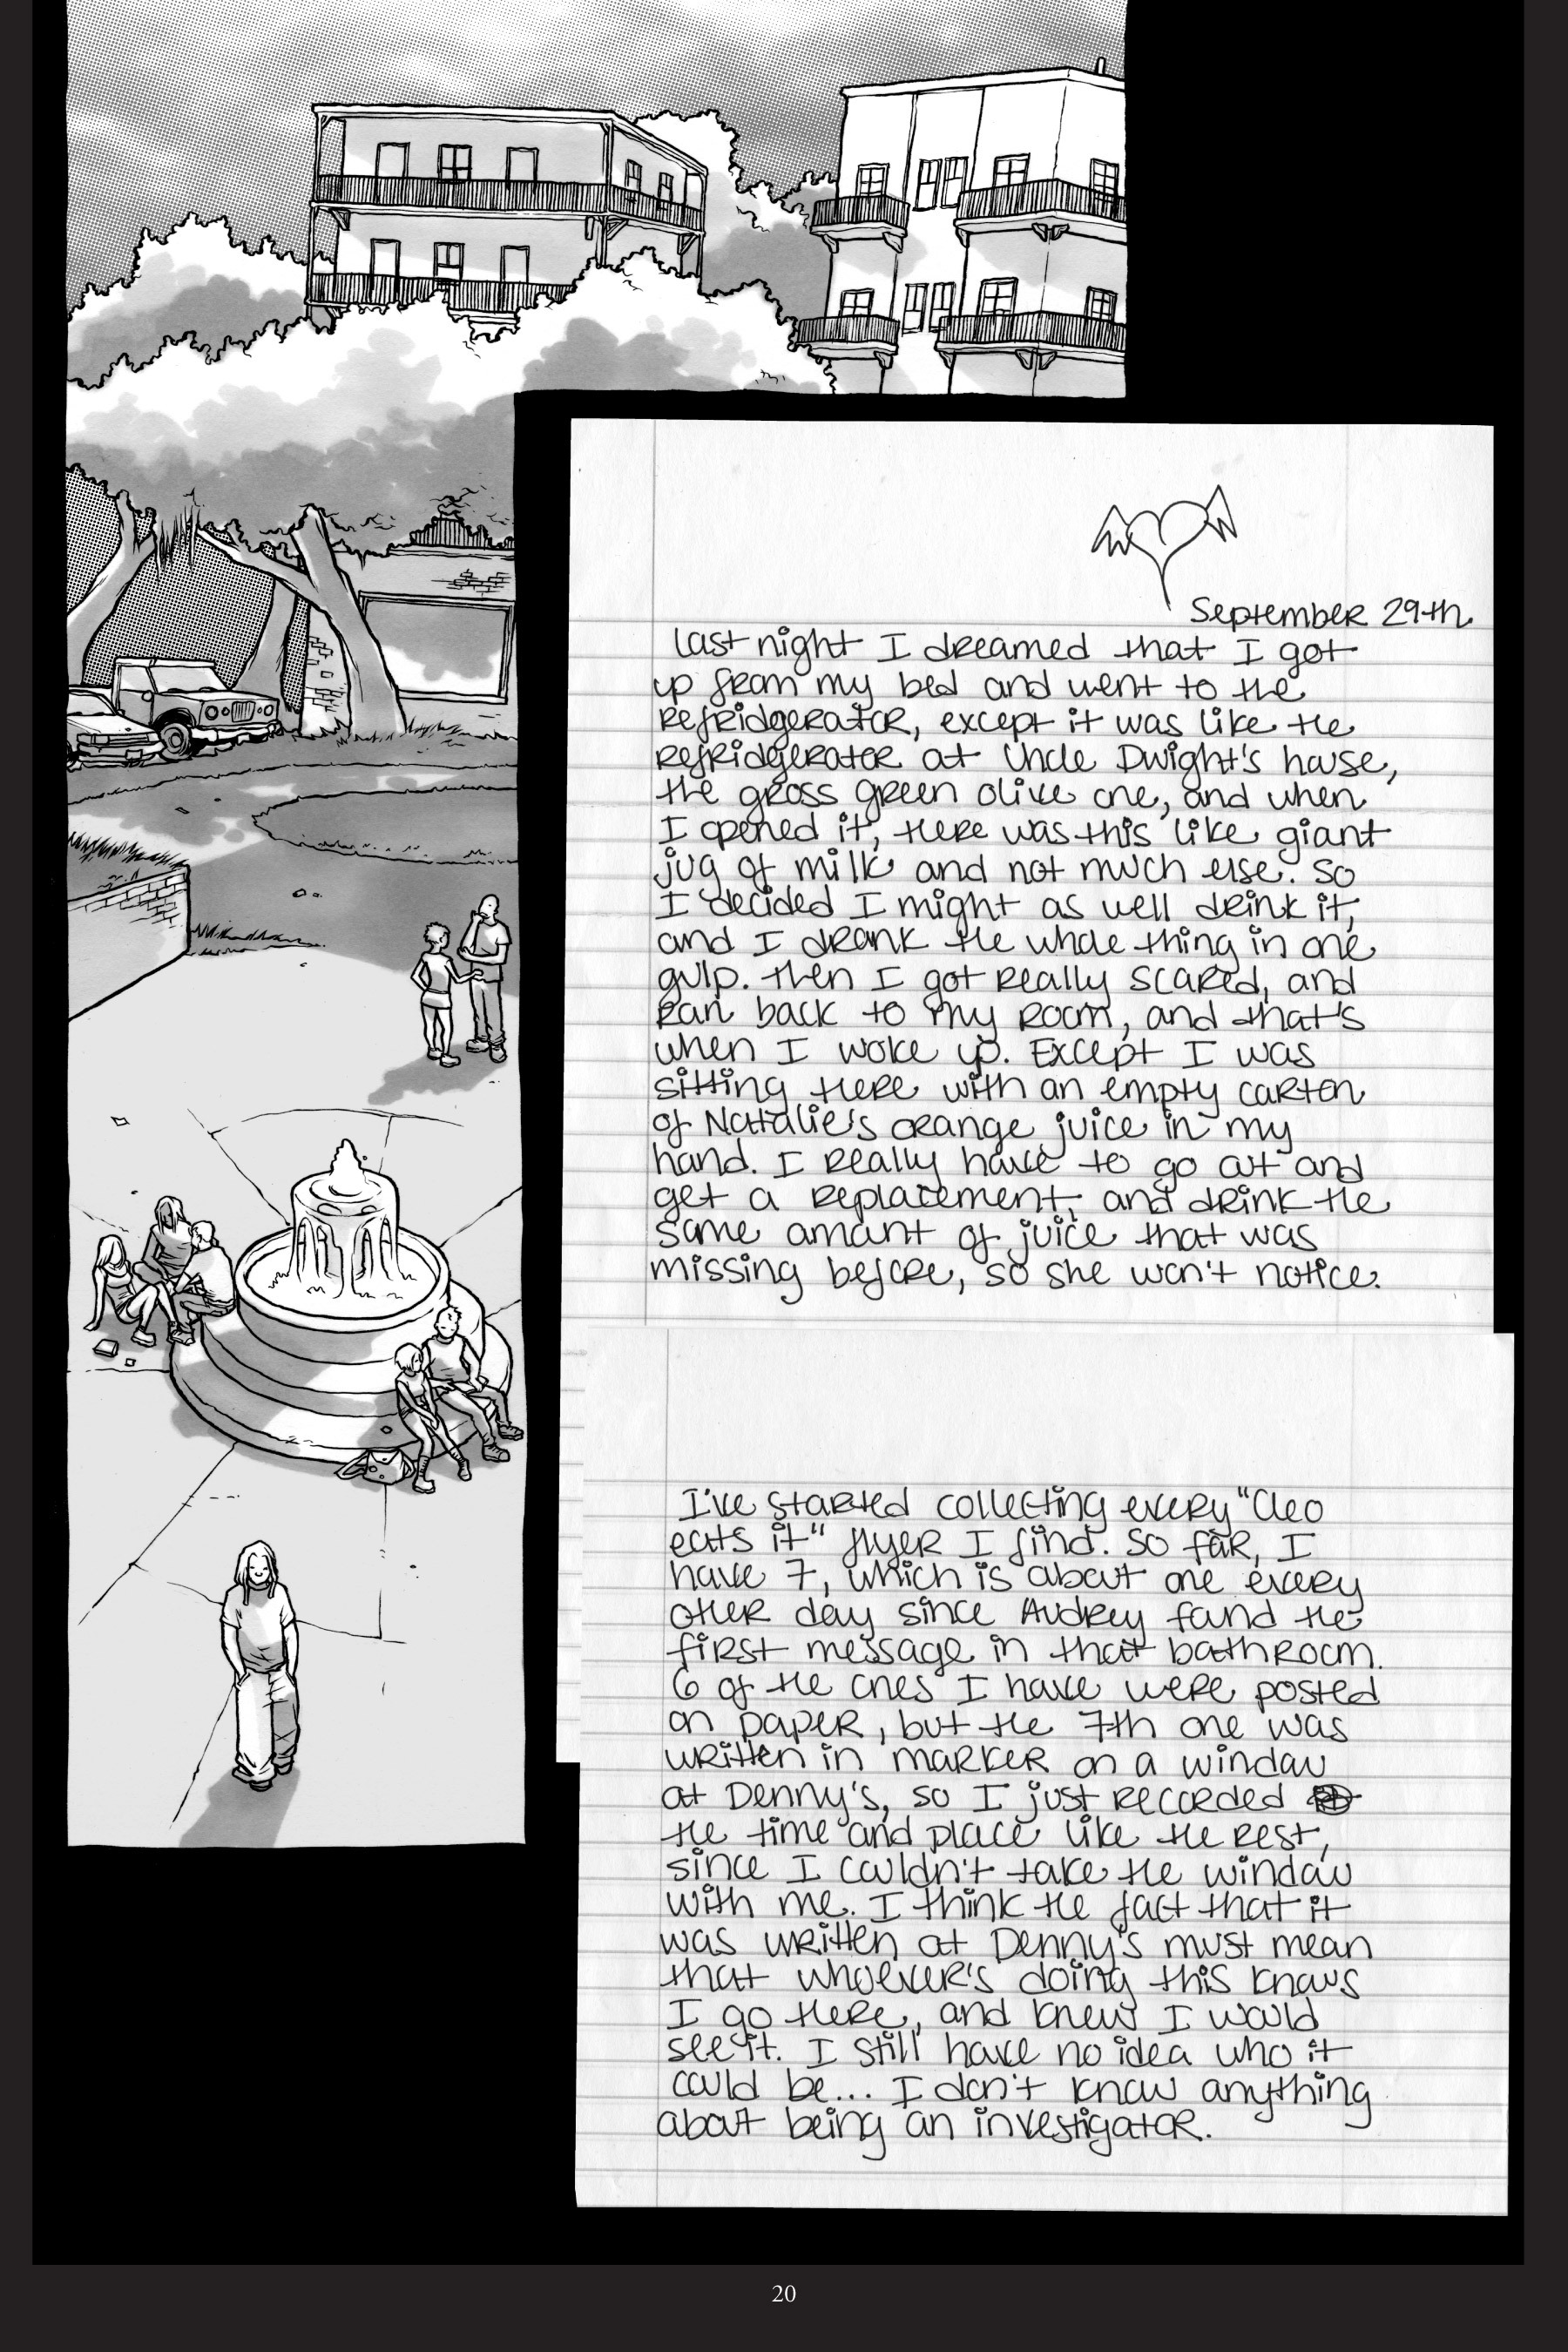 September 29th
Last night I dreamed that I got
up from my bed and went to the
refridgerator, except it was like the
refridgerator at Uncle Dwight's house,
the gross green olive one, and when
I opened it, there was this like giant
jug of milk and not much else. So
I decided I might as well drink it,
and I drank the whole thing in one
gulp. Then I got really scared, and
ran back to my room, and that's
when I woke up. Except I was
sitting there with an empty carton
of Natalie's orange juice in my
hand. I really have to go out and
get a replacement, and drink the
same amount of juice that was
missing before, so she won't notice.
I've started collecting every "Cleo
eats it" flyer I find. So far, I
have 7, which is about one every
other day since Audrey found the
first message in that bathroom.
6 of the ones I have were posted
on paper, but the 7th one was
written in marker on a window
at Denny's, so I just recorded
the time and place like the rest,
since I couldn't take the window
with me. I think the fact that it
was written at Denny's must mean
that whoever's doing this knows
I go there, and knew I would
see it. I still have no idea who it
could be... I don't know anything
about being an investigator.
20